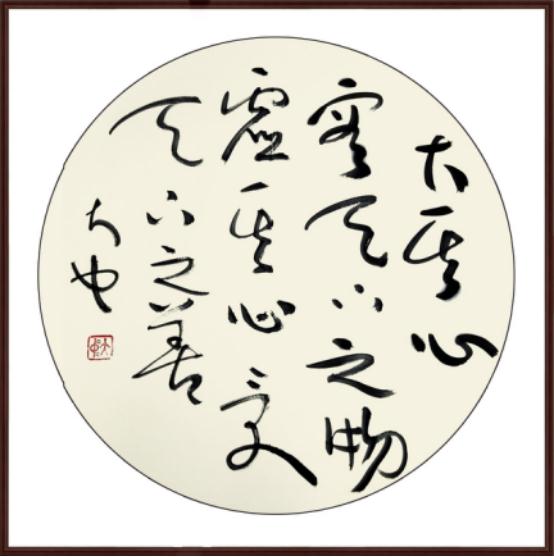 大其心
容天下之物
虚其心受
天下之善